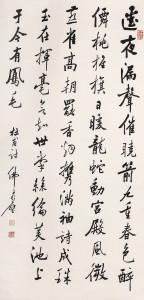 五夜漏聲催曉箭九重春色醉
僊桃旌旂日暖龍蛇動宮殿風微
燕雀高朝罷香煙攜滿袖詩成珠
玉在揮毫欲知世掌絲綸美池上
于今有鳳毛
杜甫詩